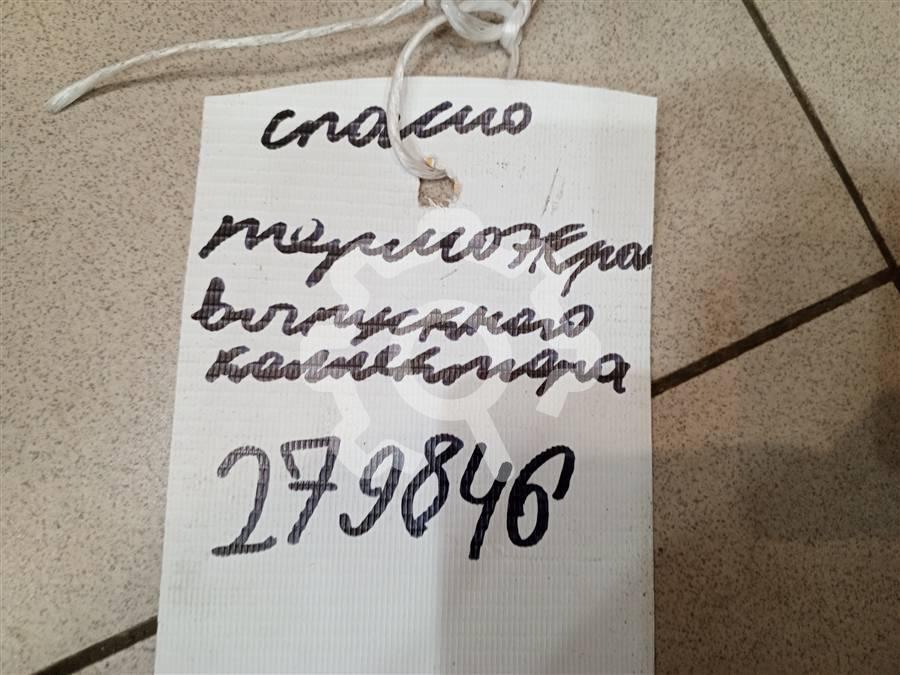 спасио
термоэкран
выпускного
коллектора
279846